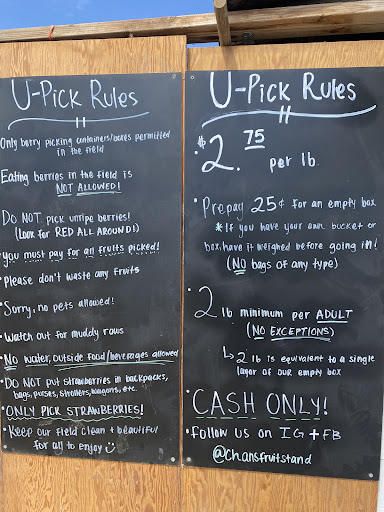 U-Pick Rules
Only berry picking containers/boxes permitted
in the field
Eating berries in the field is
NOT ALLOWED!
DO NOT pick unripe berries!
(Look for RED ALL AROUND!)
•you must pay for all fruits picked!
•please don't waste any fruits
•Sorry, no pets allowed!
•Watch out for muddy rows
•No water, outside food/beverages allowed
•DO NOT put strawberries in backpacks,
bags, purses, strollers, wagons, etc.
•ONLY PICK STRAWBERRIES!
•Keep our field clean + beautiful
for all to enjoy ☺
U-Pick Rules
•$2.75 per lb.
•Prepay 25¢ for an empty box
*If you have your own bucket or
box, have it weighed before going in!
(NO bags of any type)
•2 lb minimum per ADULT
(NO EXCEPTIONS)
↳ 2 lb is equivalent to a single
layer of our empty box
•CASH ONLY!
•follow us on IG + FB
@Chansfruitstand